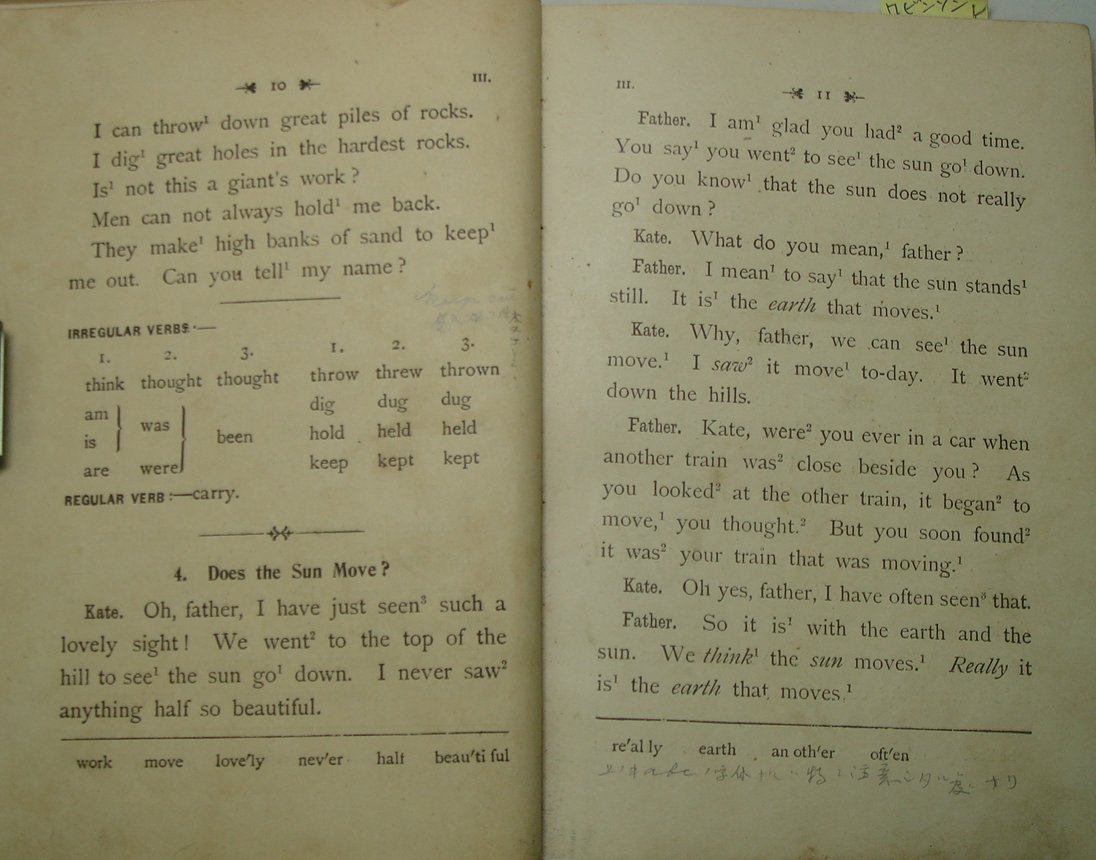 ロビンソンヒ
10 III.
I can throw¹ down great piles of rocks.
I dig¹ great holes in the hardest rocks.
Is¹ not this a giant's work?
Men can not always hold¹ me back.
They make¹ high banks of sand to keep¹
me out. Can you tell¹ my name?
IRREGULAR VERBS:—
1. 2. 3. 1. 2. 3.
think thought thought throw threw thrown
am dig dug dug
was
is been hold held held
are were keep kept kept
REGULAR VERB:—carry.
4. Does the Sun Move?
Kate. Oh, father, I have just seen³ such a
lovely sight! We went² to the top of the
hill to see¹ the sun go¹ down. I never saw²
anything half so beautiful.
work move love'ly nev'er half beau'ti ful
III. 11
Father. I am¹ glad you had² a good time.
You say¹ you went² to see¹ the sun go¹ down.
Do you know¹ that the sun does not really
go¹ down?
Kate. What do you mean,¹ father?
Father. I mean¹ to say¹ that the sun stands¹
still. It is¹ the earth that moves.¹
Kate. Why, father, we can see¹ the sun
move.¹ I saw² it move¹ to-day. It went²
down the hills.
Father. Kate, were² you ever in a car when
another train was² close beside you? As
you looked² at the other train, it began² to
move,¹ you thought.² But you soon found²
it was² your train that was moving.¹
Kate. Oh yes, father, I have often seen³ that.
Father. So it is¹ with the earth and the
sun. We think¹ the sun moves.¹ Really it
is¹ the earth that moves.¹
re'al ly earth an oth'er oft'en